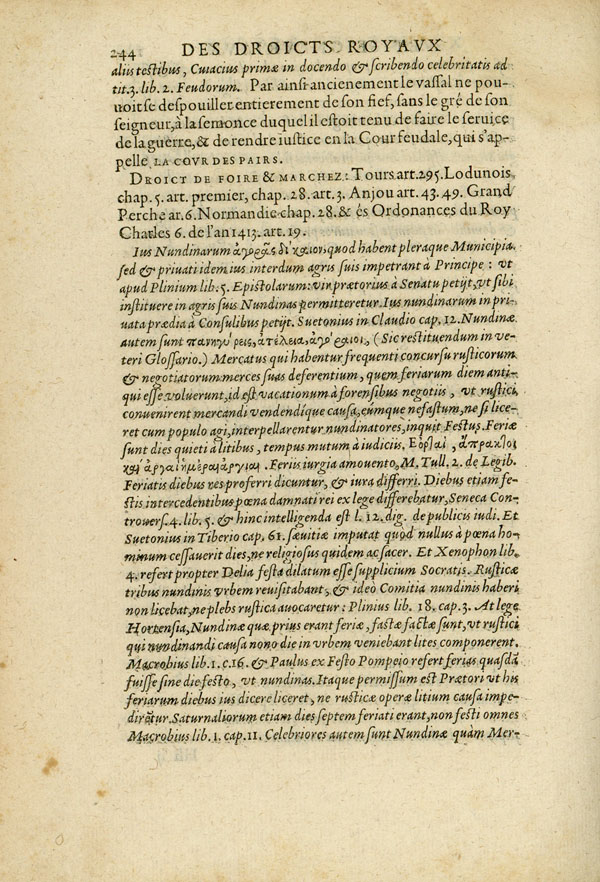 244 DES DROICTS ROYAVX
aliis testibus, Cuiacius primæ in docendo & scribendo celebritatis ad
tit.3. lib. 2. Feudorum. Par ainsi anciennement le vassal ne pou-
uoit se despouiller entierement de son fief, sans le gré de son
seigneur, à la semonce duquel il estoit tenu de faire le seruice
de la guerre, & de rendre iustice en la Cour feudale, qui s'ap-
pelle LA COVR DES PAIRS.
DROICT DE FOIRE & MARCHEZ: Tours art. 295. Lodunois
chap. 5. art. premier, chap. 28. art. 3. Anjou art. 43. 49. Grand
Perche ar. 6. Normandie chap. 28. & és Ordonances du Roy
Charles 6. de l'an 1413. art. 19.
Ius Nundinarum ἀγορᾶς δίκαιον, quod habent pleraque Municipia.
sed & priuati idem ius interdum agris suis impetrant à Principe: vt
apud Plinium lib. 5. Epistolarum: vir prætorius à Senatu petijt, vt sibi
instituere in agris suis Nundinas permitteretur. Ius nundinarum in pri-
uata prædia à Consulibus petijt. Suetonius in Claudio cap. 12. Nundinæ
autem sunt πανηγύρεις, ἀτέλεια, ἀγόραιοι, (Sic restituendum in ve-
teri Glossario.) Mercatus qui habentur frequenti concursu rusticorum
& negotiatorum merces suas deferentium, quem feriarum diem anti-
qui esse voluerunt, id est vacationum à forensibus negotiis, vt rustici
convenirent mercandi vendendíque causa, eúmque nefastum, ne si lice-
ret cum populo agi, interpellarentur nundinatores, inquit Festus. Feriæ
sunt dies quieti alitibus, tempus mutum à iudiciis. Εορταὶ, ἄπρακτοι
καὶ ἀργαὶ ἡμέραι ἀργίαι. Feriis iurgia amouento, M. Tull. 2. de Legib.
Feriatis diebus res proferri dicuntur, & iura differri. Diebus etiam fe-
stis intercedentibus pœna damnati rei ex lege differebatur, Seneca Con-
trouers. 4. lib. 5. & hinc intelligenda est l. 12. dig. de publicis iudi. Et
Suetonius in Tiberio cap. 61. sæuitiæ imputat quod nullus à pœna ho-
minum cessauerit dies, ne religiosus quidem ac sacer. Et Xenophon lib.
4. refert propter Delia festa dilatum esse supplicium Socratis. Rusticæ
tribus nundinis vrbem reuisitabant, & ideo Comitia nundinis haberi
non licebat, ne plebs rustica auocaretur: Plinius lib. 18. cap. 3. At lege
Hortensia, Nundinæ quæ prius erant feriæ, fastæ factæ sunt, vt rustici
qui nundinandi causa nono die in vrbem veniebant lites componerent.
Macrobius lib. 1. c. 16. & Paulus ex Festo Pompeio refert ferias quasdã
fuisse sine die festo, vt nundinas. Itaque permissum est Prætori vt his
feriarum diebus ius dicere liceret, ne rusticæ operæ litium causa impe-
dirẽtur. Saturnaliorum etiam dies septem feriati erant, non festi omnes
Macrobius lib. 1. cap. 11. Celebriores autem sunt Nundinæ quàm Mer-